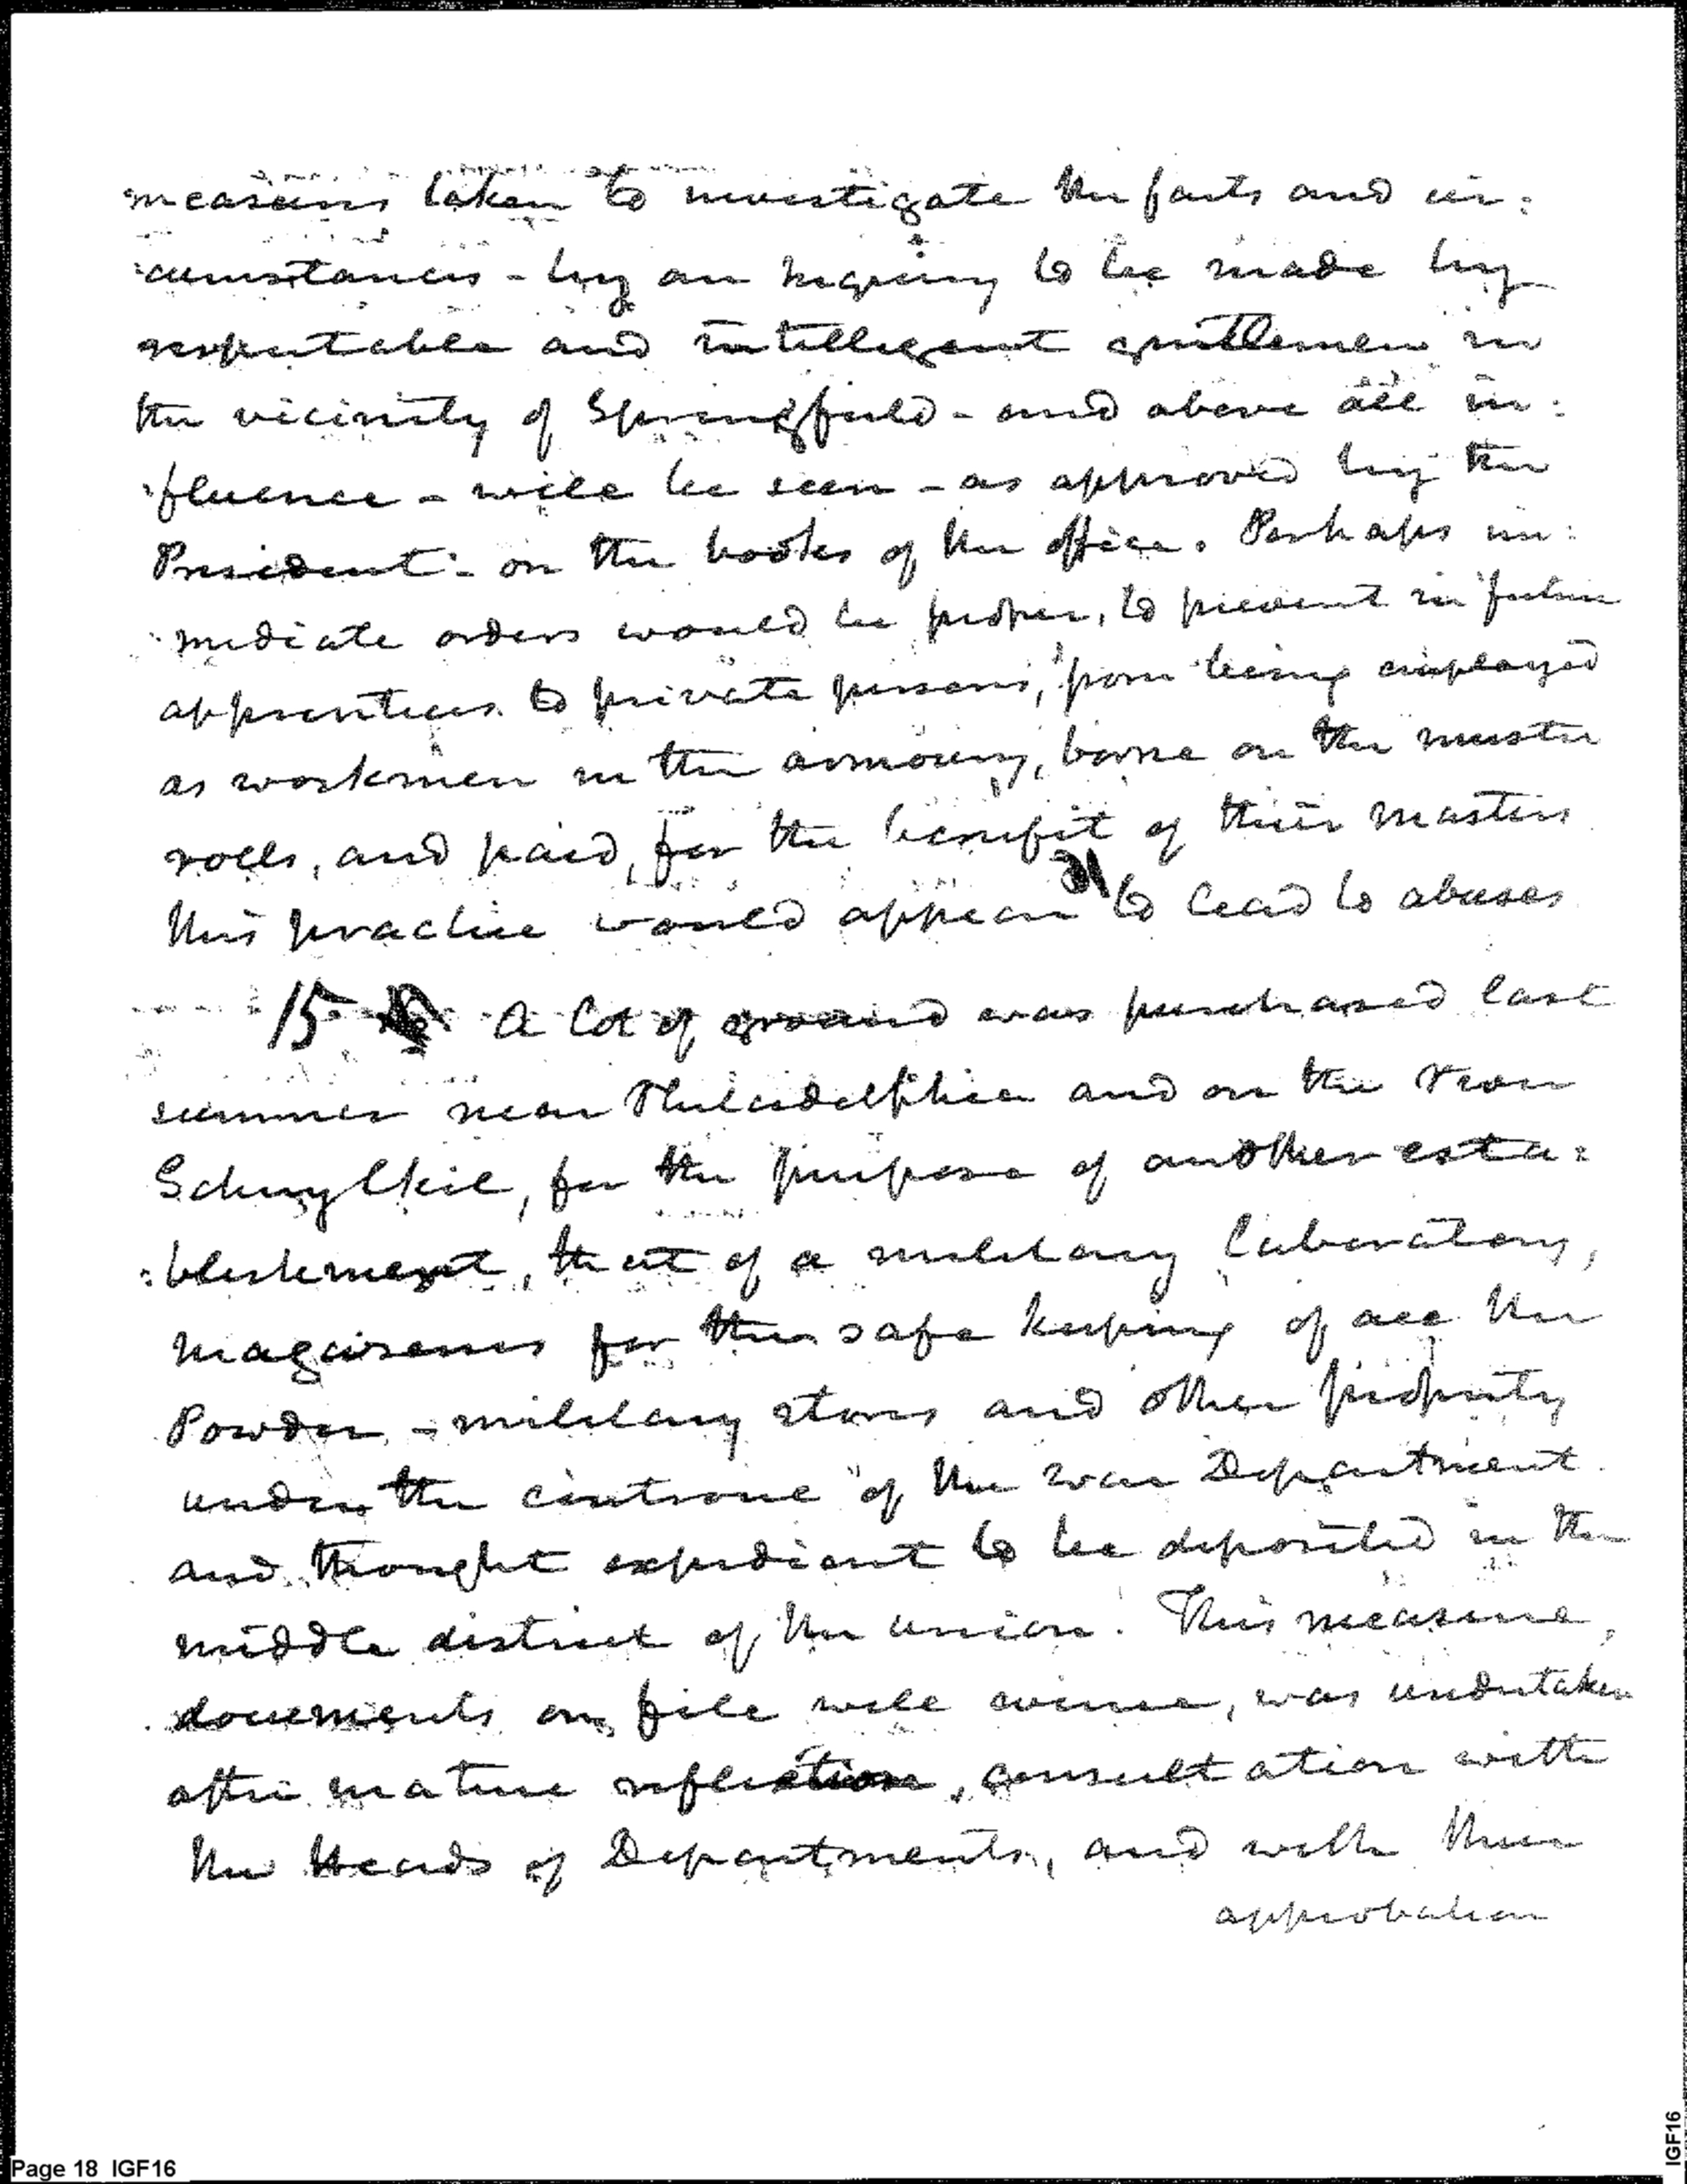 measures taken to investigate the facts and cir:
:cumstances - by an inquiry to be made by
respectable and intelligent gentlemen in
the vicinity of Springfield - and above all in:
:fluence - will be seen - as approved by the
President - on the books of the office. Perhaps im:
:mediate orders would be proper, to prevent in future
apprentices to private persons, from being employed
as workmen in the armoury, borne on the muster
rolls, and paid, for the benefit of their masters
this practice would appear to lead to abuses
15 A lot of ground was purchased last
summer near Philadelphia and on the River
Schuylkil, for the purpose of another esta:
:blishment, that of a military Laboratory,
magazines for the safe keeping of all the
Powder - military stores and other property
under the controul of the War Department
and thought expedient to be deposited in the
middle district of the union. This measure,
documents on file will evince, was undertaken
after mature reflection, consultation with
the Heads of Departments, and with their
approbation
Page 18 IGF16
IGF16